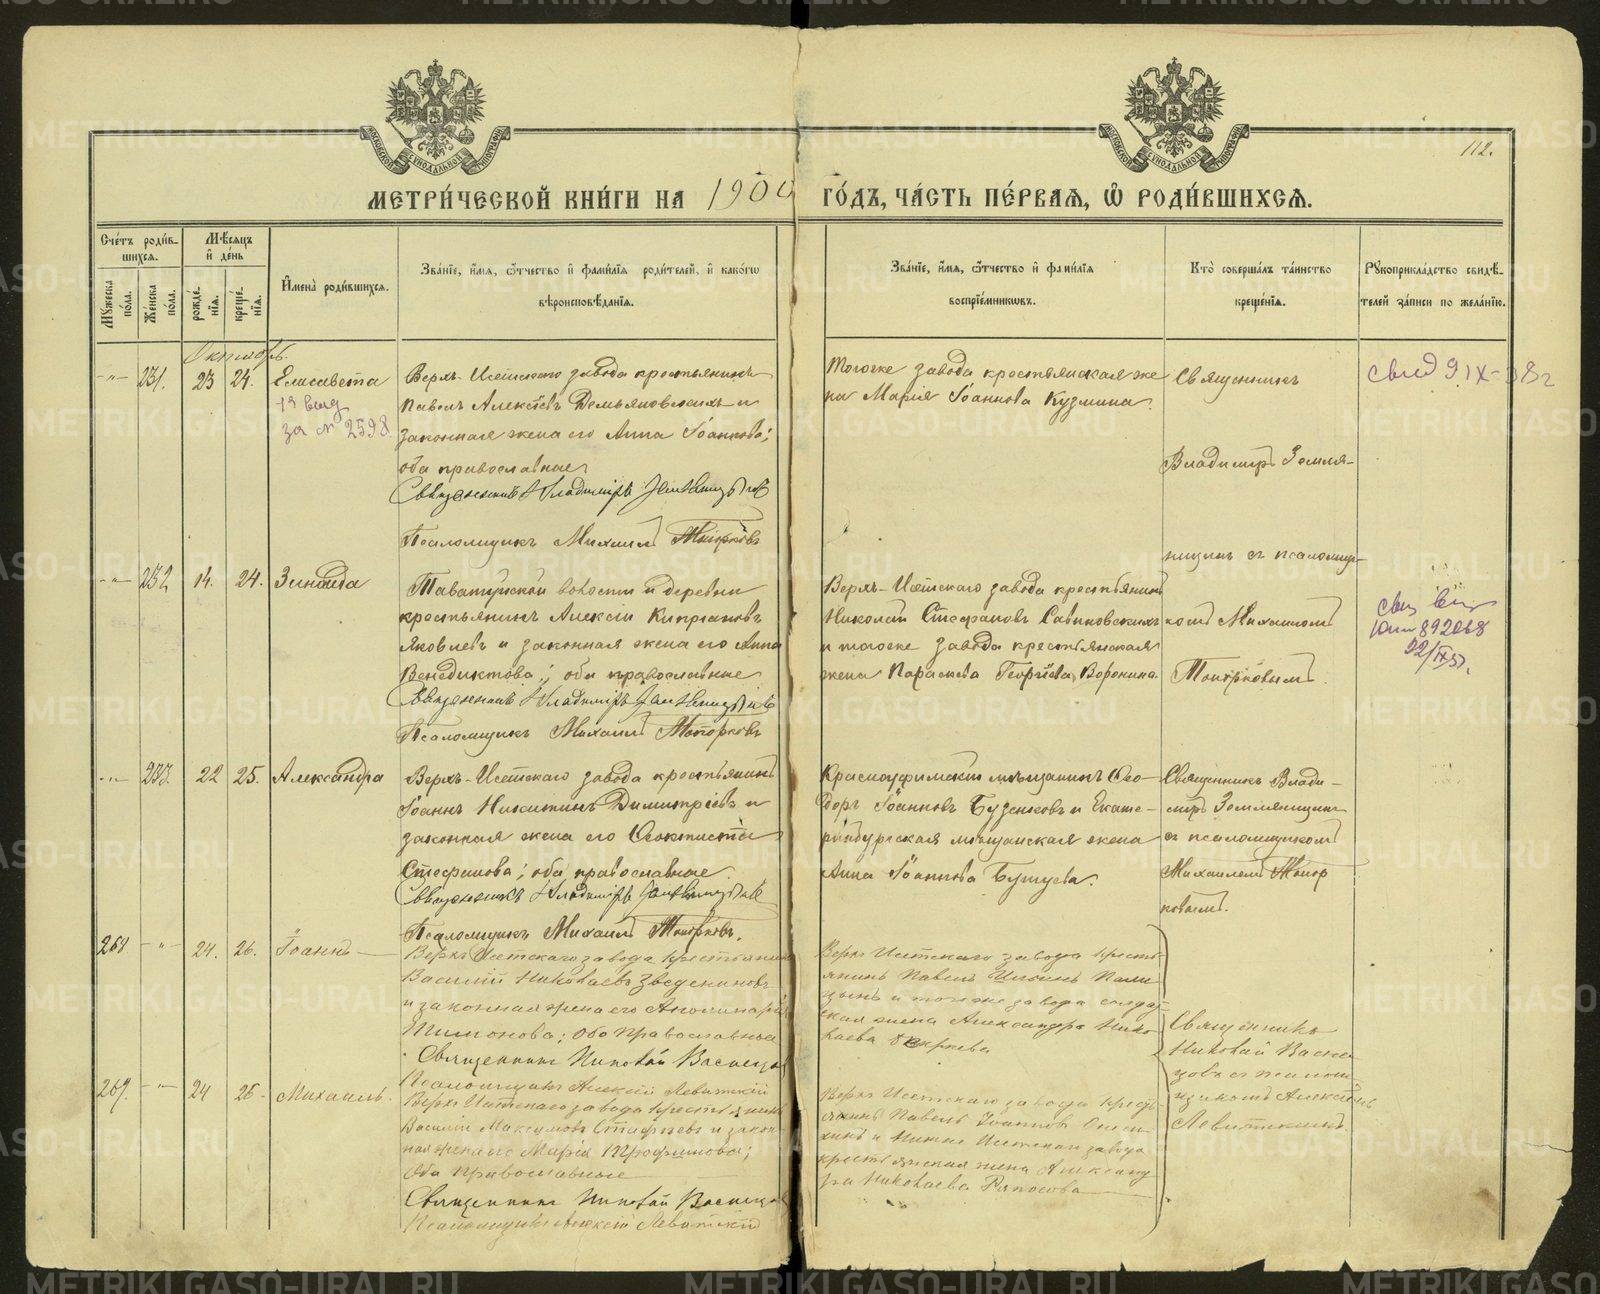 112.
МЕТРИ́ЧЕСКОЙ КНИ́ГИ НА 1900 ГО́ДЪ, ЧА́СТЬ ПЕ́РВАЯ, Ѡ РОДИ́ВШИХСЯ.
Сче́тъ роди́в-
шихся.
Мꙋ́жеска по́ла.
Же́нска по́ла.
Мѣ́сяцъ и де́нь
рожде́нїя.
креще́нїя.
И́мена роди́вшихся.
Зва́нїе, и́мя, ѻ́тчество и фами́лїя роди́телей, и како́гѡ
вѣроисповѣ́данїя.
Зва́нїе, и́мя, ѻ́тчество и фами́лїя
воспрїе́мниковъ.
Кто̀ соверша́лъ та́инство
креще́нїя.
Рꙋкоприкла́дство свидѣ́-
телей за́писи по жела́нїю.
Октябрь.
-"- 231. 23 24. Елисавета
за № 2598
Верхъ-Исетскаго завода крестьянинъ
Павелъ Алексѣевъ Демьяновскихъ и
законная жена его Анна Іоаннова;
оба православные
Священникъ Владиміръ Земляницынъ
Псаломщикъ Михаилъ Топорковъ
Тогоже завода крестьянская же
на Марія Іоаннова Кузмина.
Священникъ
Владиміръ Земля-
ницынъ съ псаломщи-
комъ Михаиломъ
Топорковымъ.
-"- 232 14. 24. Зинаида
Таватуйской волости и деревни
крестьянинъ Алексій Кипріановъ
Яковлевъ и законная жена его Анна
Венедиктова; оба православные
Священникъ Владиміръ Земляницынъ
Псаломщикъ Михаилъ Топорковъ
Верхъ-Исетскаго завода крестьянинъ
Николай Стефановъ Савиновскихъ
и тогоже завода крестьянская
жена Параскева Георгіева Воронина.
892068
22/IX 51.
-"- 233. 22 25. Александра
Верхъ-Исетскаго завода крестьянинъ
Іоаннъ Никитинъ Димитріевъ и
законная жена его Ѳеоктиста
Стефанова; оба православные.
Священникъ Владиміръ Земляницынъ
Псаломщикъ Михаилъ Топорковъ.
Красноуфимскій мѣщанинъ Ѳео-
доръ Іоанновъ Бузенковъ и Екате-
ринбургская мѣщанская жена
Анна Іоаннова
Священникъ Влади-
міръ Земляницынъ
съ псаломщикомъ
Михаиломъ Топор
ковымъ.
268 -"- 24. 26. Іоаннъ
Верхъ Исетскаго завода крестьянинъ
Василій Николаевъ Звездкиновъ
и законная жена его Аполинарія
Пимонова; Оба Православные
Священникъ Николай Васнецовъ
Псаломщикъ Алексій Левитскій
Верхъ Исетскаго завода кресть-
янинъ Павелъ
и тогоже завода солдат-
ская жена Александра Нико-
лаева
Священникъ
Николай Васне
цовъ съ псалом-
щикомъ Алексіемъ
Левитскимъ.
269. -"- 24 26. Михаилъ.
Верхъ Исетскаго завода крестьянинъ
Василій Максимовъ и закон-
ная жена его Марія Трофимова;
Оба Православные
Священникъ Николай Васнецовъ
Псаломщикъ Алексій Левитскій
Верхъ Исетскаго завода кресть-
янинъ Павелъ Іоанновъ
и Нижне Исетскаго завода
крестьянская жена Александ-
ра Николаева Ряпосова